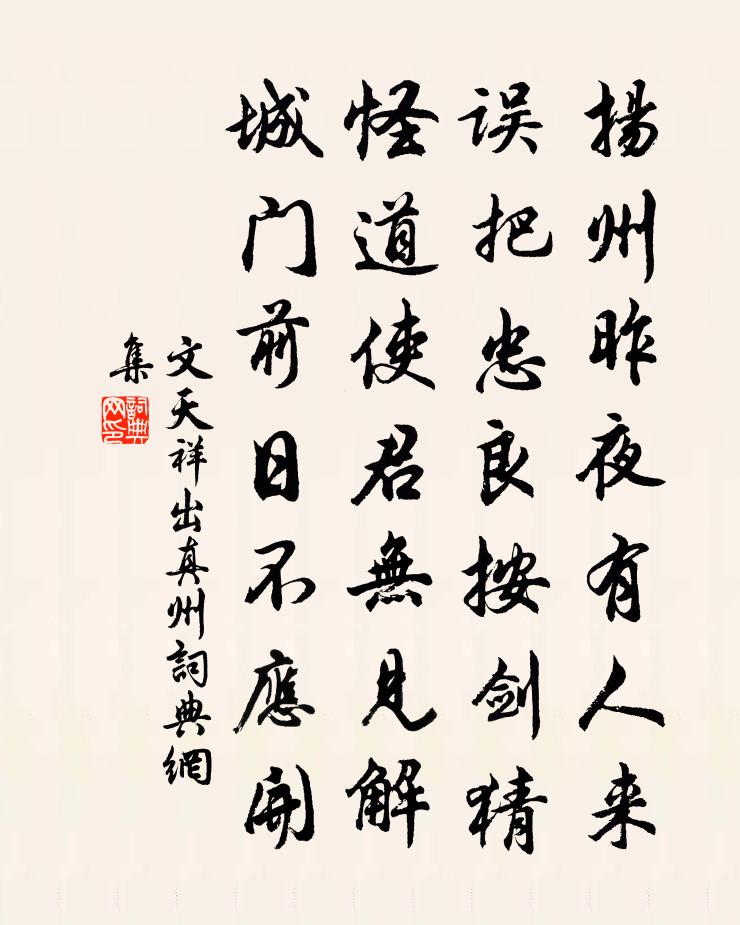 揚州昨夜有人来
误把忠良按剑猜
怪道使君無見解
城门前日不應開
文天祥出真州詞典網
集
詞典网印